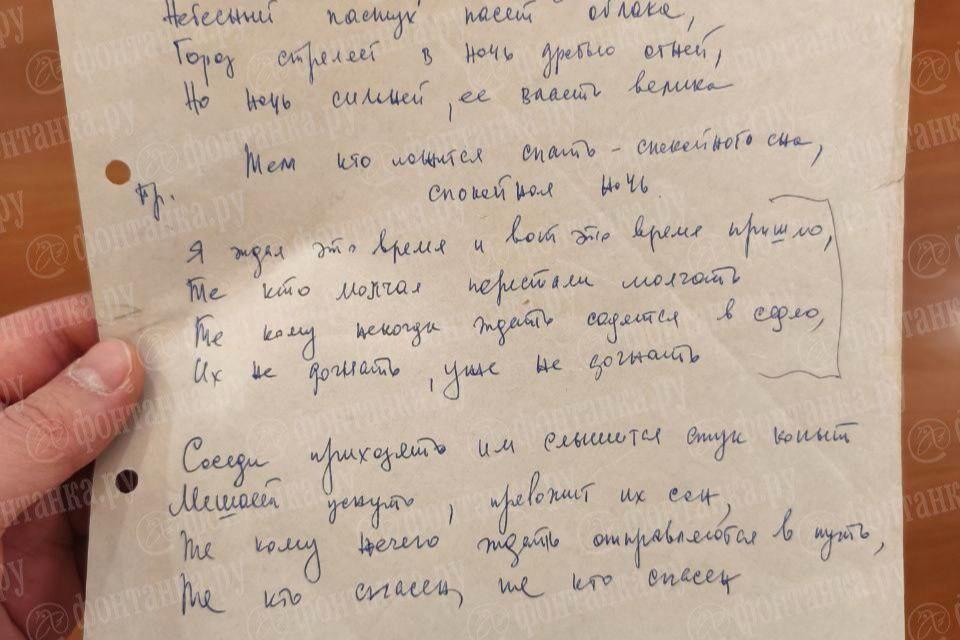 Небесный пастух пасет облака,
Город стреляет в ночь дробью огней,
Но ночь сильней, ее власть велика
Тем кто ложится спать - спокойного сна,
Пр. спокойная ночь.
Я ждал это время и вот это время пришло,
Те кто молчал перестали молчать
Те кому некогда ждать садятся в седло,
Их не догнать, уже не догнать
Соседи приходят им слышится стук копыт
Мешает уснуть, тревожит их сон,
Те кому нечего ждать отправляются в путь,
Те кто спасен, те кто спасен
фонтанка.ру